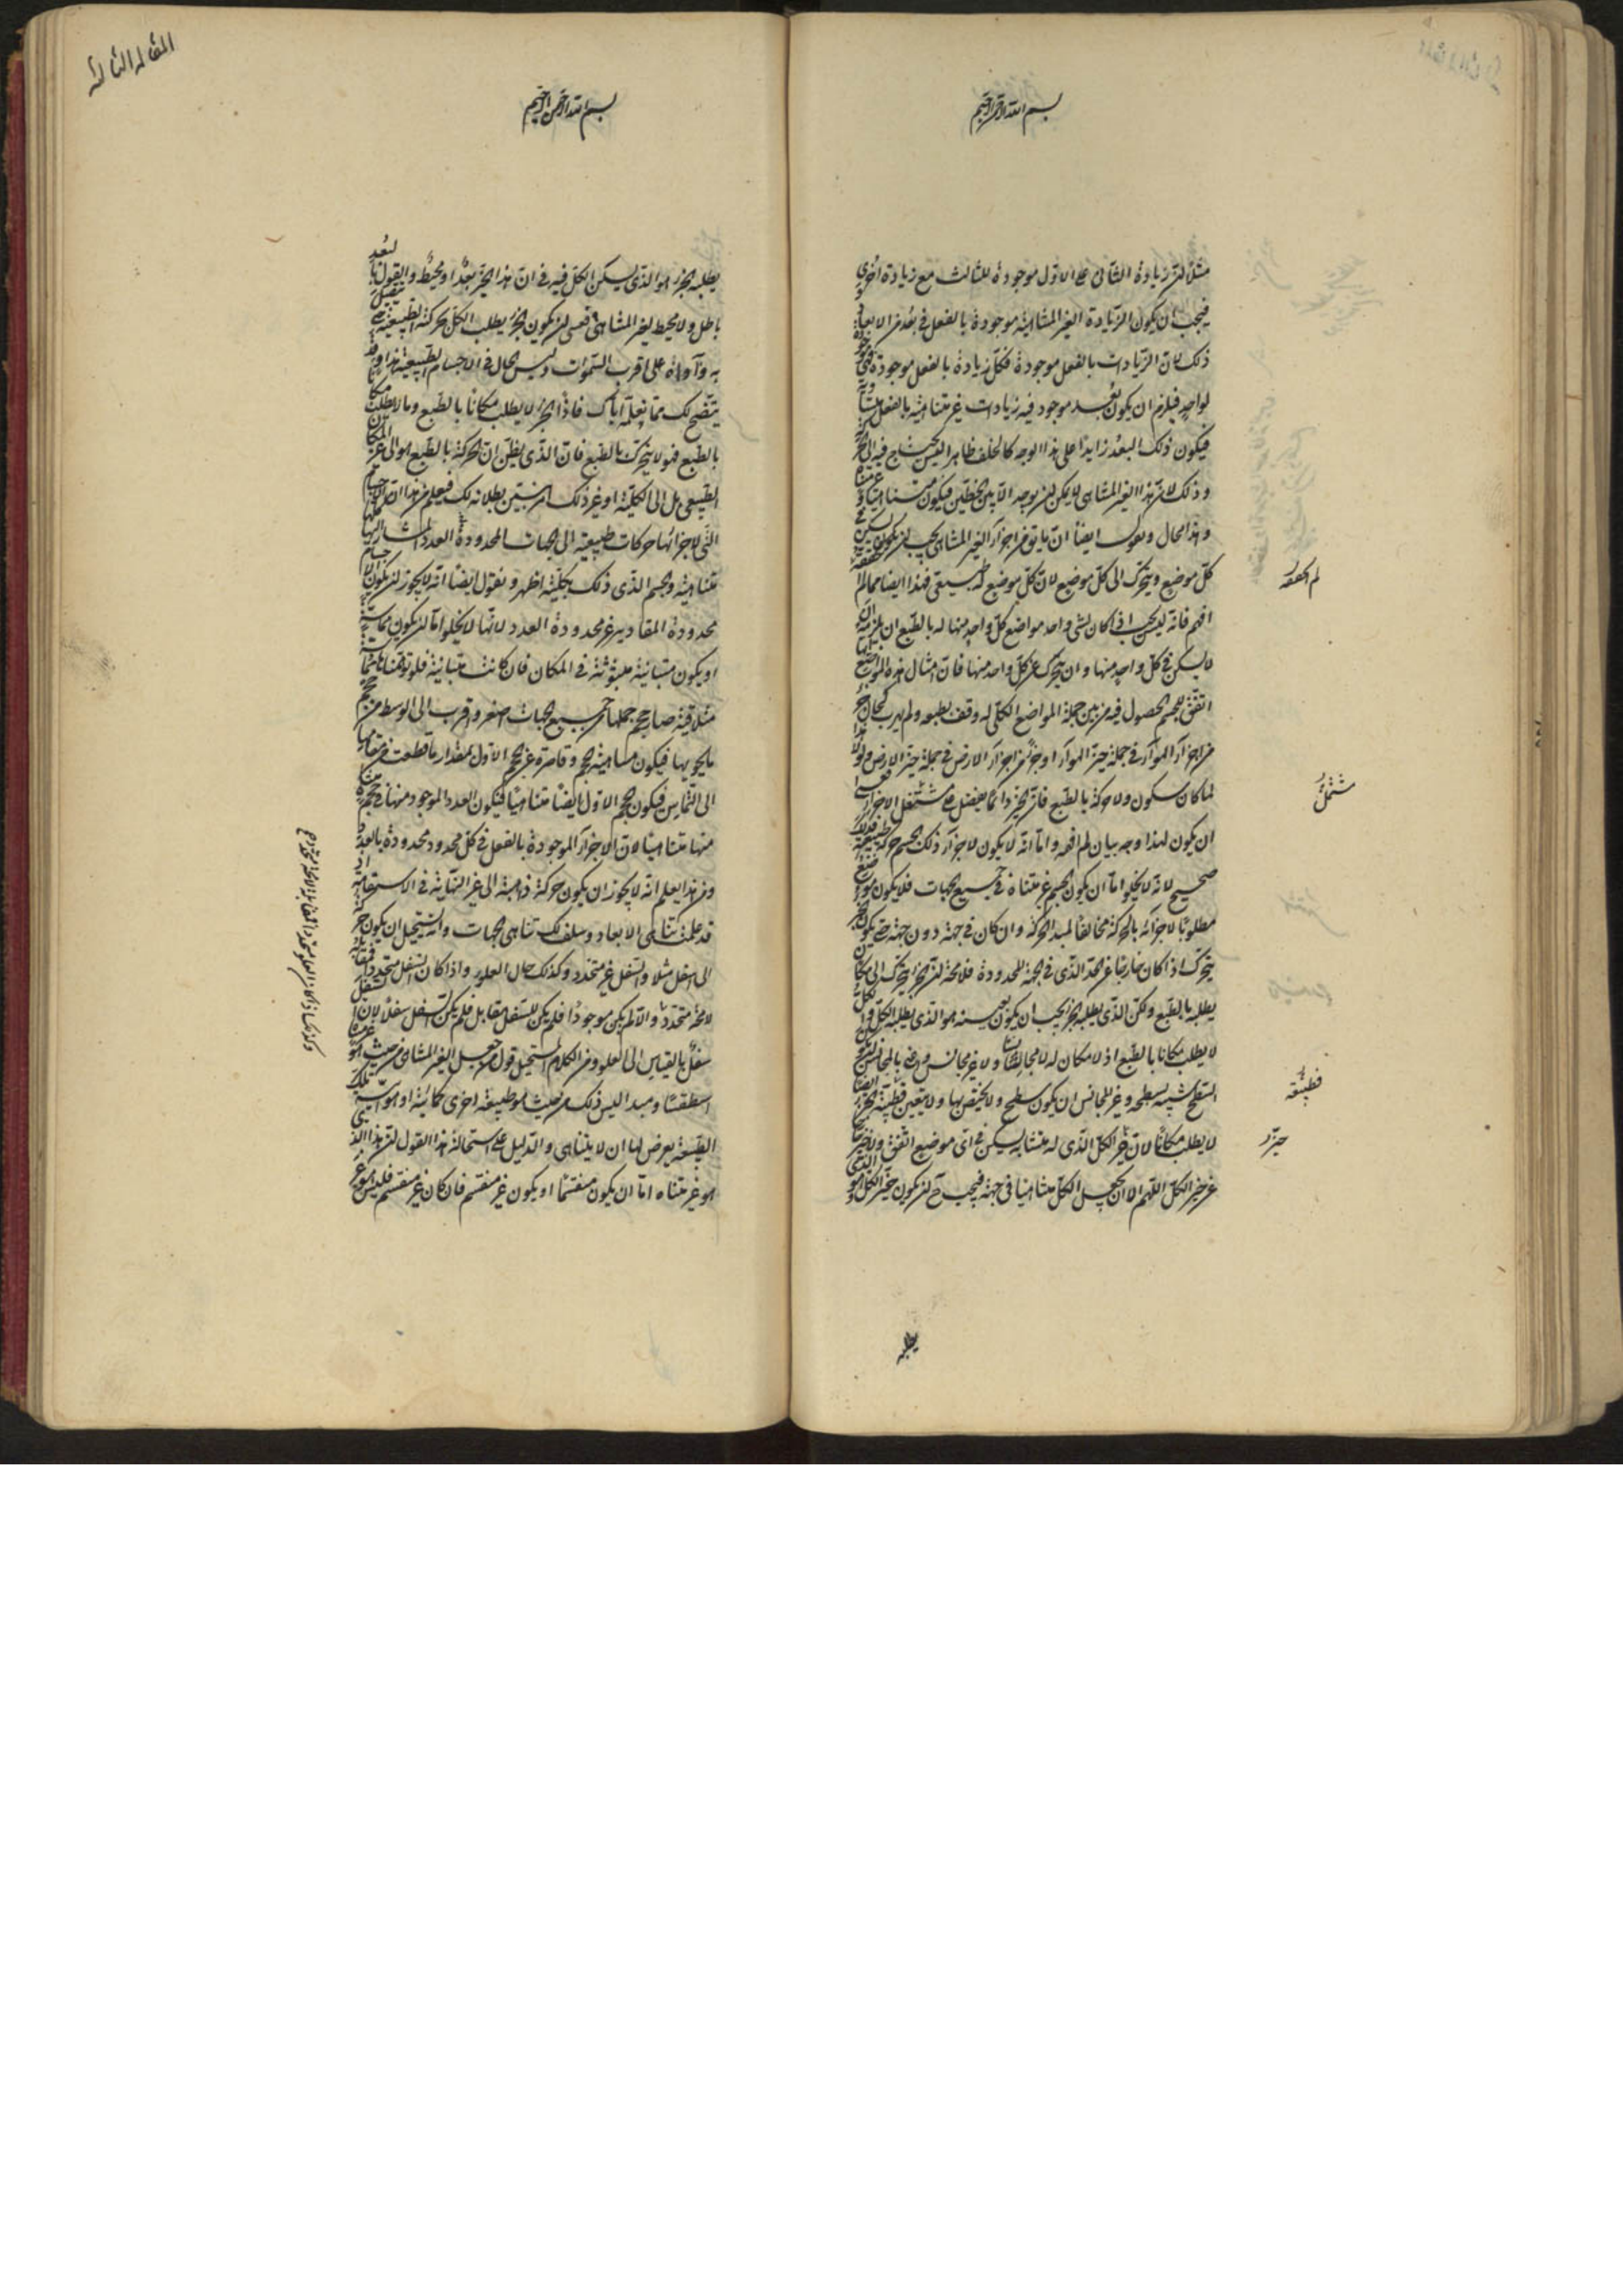 بسم الله الرحمن الرحيم
مثلا ان زيادة الثانى على الاول موجودة للثالث مع زيادة اخرى
فيجب ان يكون الزيادة الغير المتناهية موجودة بالفعل فى بعد من الابعاد و
ذلك لان الزيادات بالفعل موجودة فكل زيادة بالفعل موجودة فهى
لواحد فيلزم ان يكون بعد موجود فيه زيادات غير متناهية بالفعل متساوية
فيكون ذلك البعد زايدا على هذا الوجه كالخلف ظاهر ليس يحتاج فيه الى
وذلك لان هذا الغير المتناهى لا يمكن ان يوجد الا بين الخطين فيكون متناهيا
وهذا محال ونقول ايضا ان ما يق من اجزاء الغير المتناهى يجب ان يكون يسكن فى
كل موضع ويتحرك الى كل موضع لان كل موضع له طبيعى فهذا ايضا مما لم
افهم فانه ليس يجب اذا كان لشى واحد مواضع كل واحد منها له بالطبع ان يلزمه ان
لا يسكن فى كل واحد منها وان يتحرك عن كل واحد منها فان امثال هذه المواضع
اتفق للجسم الحصول فيه من بين جملة المواضع الكلى له وقف بطبعه ولم يهرب كحال جزء
من اجزاء الهواء فى جملة حيز الهواء او جزء من اجزاء الارض فى جملة حيز الارض ولولا
لما كان سكون ولا حركة بالطبع فان الحيز دائما يفضل على مشتغل الاجزاء
ان يكون لهذا وجه بيان لم افهمه واما انه لا يكون لاجزاء ذلك الجسم حركة طبيعية
صحيح لانه لا يخلو اما ان يكون الجسم غير متناه فى جميع الجهات فلا يكون موضع
مطلوبا لاجزائه بالحركة مخالفا لمبدا الحركة وان كان فى جهة دون جهة حتى يكون
يتحرك اذا كان خارجا عن الحد الذى فى الجهة المحدودة فلا محة ان الجزء يتحرك الى مكان
يطلبه بالطبع ولكن الذى يطلبه الجزء يجب ان يكون بعينه هو الذى يطلبه الكل
لا يطلب مكانا بالطبع اذ لا مكان له لا مجانسا ولا غير مجانس
السطح شبيه بسطحه وغير المجانس ان يكون سطح ولا يختص بها ولا يتعين
لا يطلب مكانا لان حيز الكل الذى له متشابه يسكن فى اى موضع اتفق
غير حيز الكل اللهم الا ان يجعل الكل متناهيا فى جهة فيجب ح ان يكون حيز الكل هو الذى
لم احققه
مشتمل
فطبيعته
حيزه
يطلبه
المقالة الثالثة
بسم الله الرحمن الرحيم
يطلبه الجزء هو الذى يسكن الكل فيه فى ان هذا الحيز بعد او محيط والقول بالبعد
باطل ولا محيط لغير المتناهى فعسى ان يكون الجزء يطلب الكل بحركته الطبيعية حتى يتصل
به وآواه على اقرب السموت وليس الحال فى الاجسام الطبيعية هذا وقد
يتضح لك مما نعلمه اياك فاذا الجزء لا يطلب مكانا بالطبع وما لا يطلب مكانا
بالطبع فهو لا يتحرك بالطبع فان الذى يظن ان الحركة بالطبع هو الى غير المكان
الطبيعى بل الى الكلية او غير ذلك امر نبين بطلانه لك فيعلم من هذا ان الاجسام
التى لاجزائها حركات طبيعية الى الجهات المحدودة العدد المشار اليها كلها
متناهية والجسم الذى ذلك بكليته اظهر ونقول ايضا انه لا يجوز ان يكون الاجسام
محدودة المقادير غير محدودة العدد لانها لا يخلوا اما ان يكون مماسة
او يكون متباينة مبثوثة فى المكان فان كانت متباينة فلو توهمناها مماسة
متلاقية صار حجم جملها من جميع الجهات اصغر واقرب الى الوسط من حجم
ما يحويها فيكون متناهية الحجم وقاصرة عن الحجم الاول بمقدار ما قطعت من مقامها
الى التماس فيكون الحجم الاول ايضا متناهيا فيكون العدد الموجود منها فى حجم متناه
منها متناهيا لان الاجزاء الموجودة بالفعل فى كل محدود محدودة بالعدد
ومن هذا يعلم انه لا يجوز ان يكون حركة ذاهبة الى غير النهاية فى الاستقامة اذ
قد علمت تناهى الابعاد وسلف لك تناهى الجهات وانه يستحيل ان يكون حركة
الى اسفل مثلا والسفل غير متحدد وكذلك حال العلو واذا كان السفل متحددا فمقابله
لا محة متحدد والا لم يكن موجودا فلم يكن للسفل مقابل فلم يكن السفل سفلا لان السفل
سفل بالقياس الى العلو ومن الكلام المستحيل قول من جعل الغير المتناهى من حيث هو غير متناه
اسطقسا ومبدا ليس ذلك من حيث هو طبيعة اخرى كمائية او هوائية تلك
الطبيعة يعرض لها ان لا يتناهى والدليل على استحالة هذا القول ان هذا الذى
هو غير متناه اما ان يكون منقسما او يكون غير منقسم فان كان غير منقسم فليس هو غير